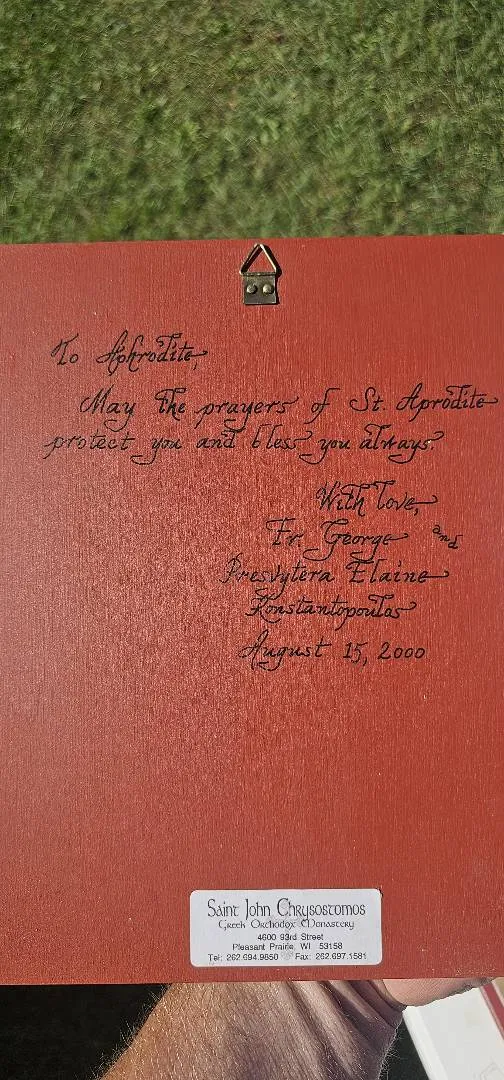 To Aphrodite,
May the prayers of St. Aprodite
protect you and bless you always.
With love,
Fr. George and
Presvytera Elaine
Konstantopoulos
August 15, 2000
Saint John Chrysostomos
Greek Orthodox Monastery
4600 93rd Street
Pleasant Prairie, WI 53158
Tel: 262.694.9850 Fax: 262.697.1581